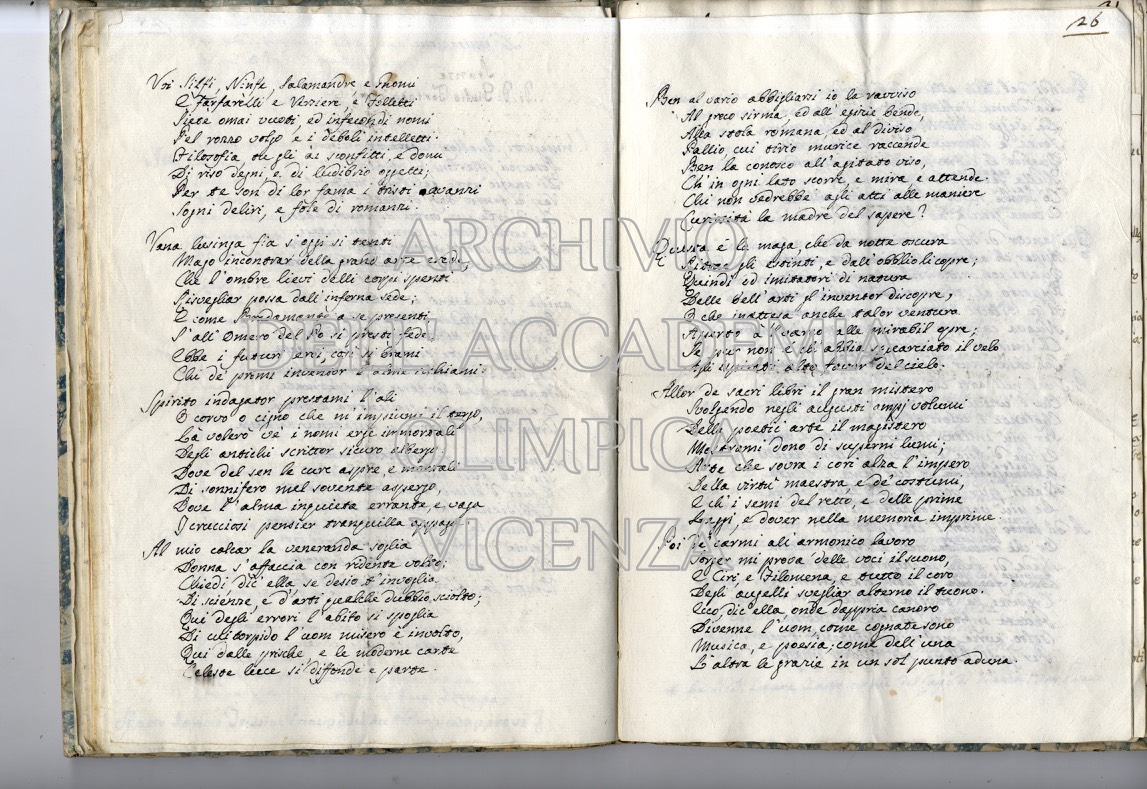 Voi Silfi, Ninfe, Salamandre e Gnomi
E Farfarelli e Versiere, e Folletti
Siete omai vuoti ed infecondi nomi
Pel rozzo volgo e i deboli intelletti.
Filosofia, tu gli ai sconfitti, e domi
Di riso degni, e di ludibrio oggetti;
Per te son di lor fama i tristi avanzi
Sogni deliri, e fole di romanzi.
Vana lusinga fia s'oggi si tenti
Mago incontrar della grand'arte erede,
Che l'ombre lievi delli corpi spenti
Risvegliar possa dall'inferna sede;
E come a se presenti
S'all'Omero del si presti fede
Ebbe i futuri eroi, così si brami
Chi de' primi inventor l'alme richiami.
Spirito indagator prestami l'ali
O corvo o cigno che m'impiumi il tergo,
Là volerò v'è i nomi erge immortali
Degli antichi scrittor sicuro albergo
Dove del sen le cure aspre e mortali
Di sonnifero mel sovente aspergo,
Dove l'alma inquieta errante, e vaga
I crucciosi pensier tranquilla appaga.
Al mio calcar la veneranda soglia
Donna s'affaccia con ridente volto;
Chiedi dic'ella se desio t'invoglia
Di scienze, e d'arti qualche dubbio sciolto;
Qui degli errori l'abito si spoglia
Di cui torpido l'uom misero è involto,
Qui dalle prische e le moderne carte
Celeste luce si diffonde e parte.
26
Ben al vario abbigliarsi io la ravviso
Al greco sirma, ed all'egizie bende,
Alla stola romana, ed al diviso
Pallio, cui tirio murice raccende
Ben la conosco all'agitato viso,
Ch'in ogni lato scorre e mira e attende.
Chi non vedrebbe agli atti alle maniere
Curiosità la madre del sapere?
Questa è la maga, che da notte oscura
Ritrae gli estinti, e dall'obblio li copre;
Quindi ed imitatori di natura
Delle bell'arti gl'inventor discopre,
O che inattesa anche talor ventura
Aperto à 'l varco alle mirabil opre;
Se pur non è ch'abbia squarciato il velo
Agli alto favor del cielo.
Allor de sacri libri il gran mistero
Svolgendo negli augusti ampj volumi
Della poetic'arte il magistero
Mostremi dono di superni lumi;
Arte che sovra i cori alza l'impero
Della virtù maestra e de' costumi,
E ch'i semi del retto, e delle prime
Leggi, e dover nella memoria imprime.
Poi de' carmi all'armonico lavoro
Porger mi prova delle voci il suono,
E Ciri, e Filomena, e tutto il coro
Degli augelli svegliar alterno il tuono.
Ecco dic'ella onde dappria canoro
Divenne l'uom, come cognate sono
Musica, e poesia; come dell'una
L'altra le grazie in un sol punto aduna.
ARCHIVIO
DELL'ACCADEMIA
OLIMPICA
VICENZA